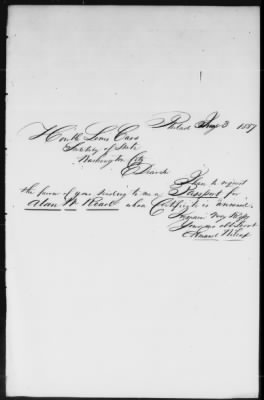 Philad. Aug 3 1857
Honble Lewis Cass
Secretary of State
Washington City
Dear Sir
I beg to request
the favor of your sending to me a Passport for
Alan W. whose Certificate is annexed.
I remain very Resp
Your Obt Servt
Edward